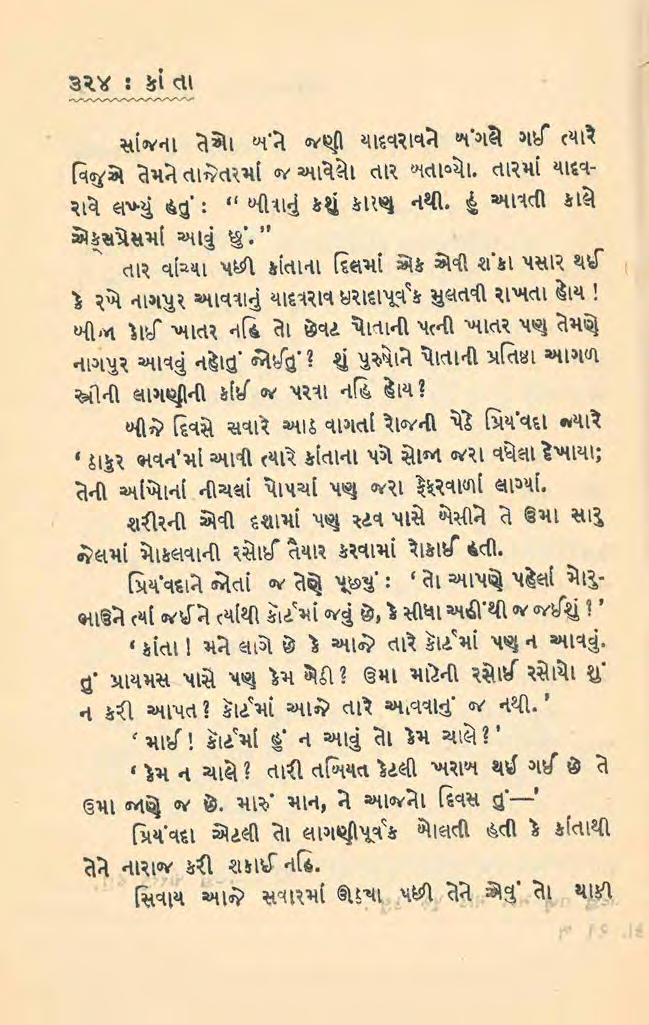 ૩૨૪ : કાંતા
સાંજના તેઓ બંને જણી યાદવરાવને બંગલે ગઈ ત્યારે
વિજુએ તેમને તાજેતરમાં જ આવેલો તાર બતાવ્યો. તારમાં યાદવ-
રાવે લખ્યું હતું : “ બીવાનું કશું કારણ નથી. હું આવતી કાલે
એક્સપ્રેસમાં આવું છું.”
તાર વાંચ્યા પછી કાંતાના દિલમાં એક એવી શંકા પસાર થઈ
કે રખે નાગપુર આવવાનું યાદવરાવ ઇરાદાપૂર્વક મુલતવી રાખતા હોય !
બીજા કોઈ ખાતર નહિ તો છેવટ પોતાની પત્ની ખાતર પણ તેમણે
નાગપુર આવવું નહોતું જોઈતું ? શું પુરુષોને પોતાની પ્રતિષ્ઠા આગળ
સ્ત્રીની લાગણીની કાંઈ જ પરવા નહિ હોય ?
બીજે દિવસે સવારે આઠ વાગતાં રોજની પેઠે પ્રિયંવદા જ્યારે
‘ ઠાકુર ભવન’માં આવી ત્યારે કાંતાના પગે સોજા જરા વધેલા દેખાયા;
તેની આંખોનાં નીચલાં પોપચાં પણ જરા ફેફરવાળાં લાગ્યાં.
શરીરની એવી દશામાં પણ સ્ટવ પાસે બેસીને તે ઉમા સારુ
જેલમાં મોકલવાની રસોઈ તૈયાર કરવામાં રોકાઈ હતી.
પ્રિયંવદાને જોતાં જ તેણે પૂછ્યું : ‘ તો આપણે પહેલાં મોરુ-
ભાઉને ત્યાં જઈને ત્યાંથી કોર્ટમાં જવું છે, કે સીધા અહીંથી જ જઈશું ? ’
‘ કાંતા ! મને લાગે છે કે આજે તારે કોર્ટમાં પણ ન આવવું.
તું પ્રાયમસ પાસે પણ કેમ બેઠી ? ઉમા માટેની રસોઈ રસોયો શું
ન કરી આપત ? કોર્ટમાં આજે તારે આવવાનું જ નથી. ’
‘ માઈ ! કોર્ટમાં હું ન આવું તો કેમ ચાલે ? ’
‘ કેમ ન ચાલે ? તારી તબિયત કેટલી ખરાબ થઈ ગઈ છે તે
ઉમા જાણે જ છે. મારું માન, ને આજનો દિવસ તું—’
પ્રિયંવદા એટલી તો લાગણીપૂર્વક બોલતી હતી કે કાંતાથી
તેને નારાજ કરી શકાઈ નહિ.
સિવાય આજે સવારમાં ઊઠ્યા પછી તેને એવું તો થાકી